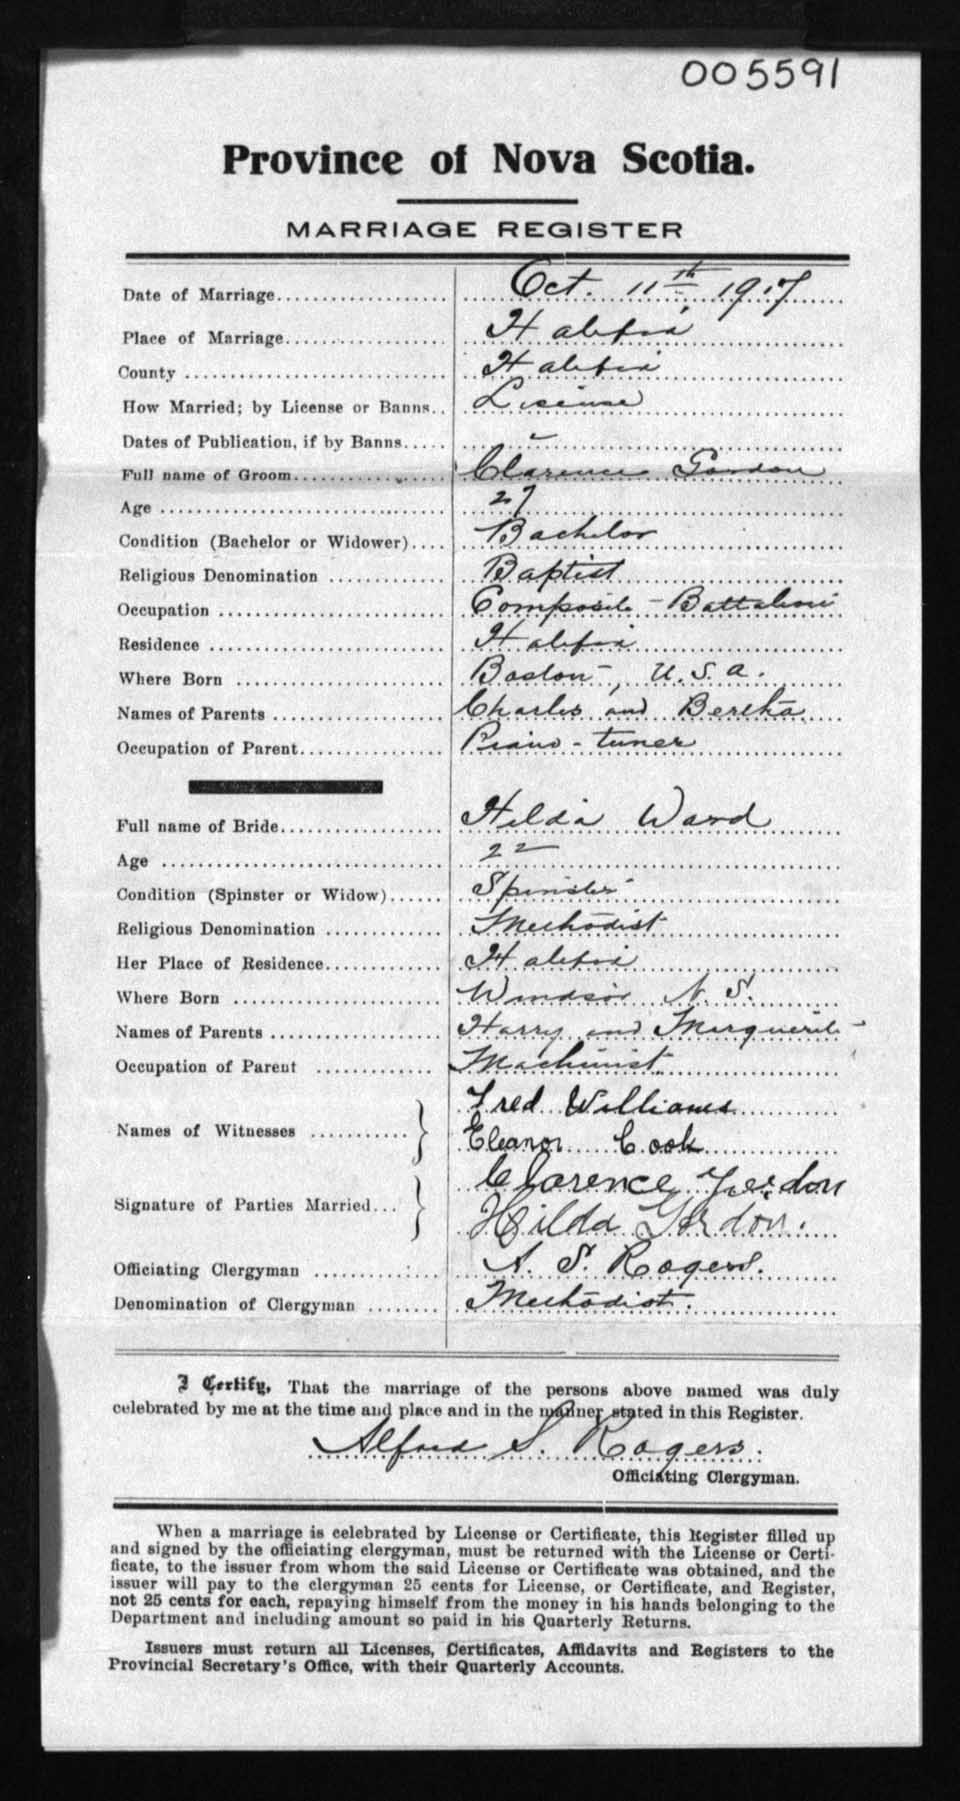 005591
Province of Nova Scotia.
MARRIAGE REGISTER
Date of Marriage.................. Oct. 11th, 1917
Place of Marriage................. Halifax
County ............................. Halifax
How Married; by License or Banns.. License
Dates of Publication, if by Banns..... -
Full name of Groom................. Clarence Gordon
Age ............................... 27
Condition (Bachelor or Widower).... Bachelor
Religious Denomination ............. Baptist
Occupation ......................... Composite - Battalion
Residence .......................... Halifax
Where Born ....................... Boston, U.S.A.
Names of Parents ................... Charles and Bertha
Occupation of Parent................ Piano-tuner
Full name of Bride.................. Hilda Ward
Age ............................... 22
Condition (Spinster or Widow)...... Spinster
Religious Denomination ............. Methodist
Her Place of Residence............. Halifax
Where Born ....................... Windsor N.S.
Names of Parents ................... Harry and Marguerite
Occupation of Parent ............. Machinist
Names of Witnesses ........... } Fred Williams
Eleanor Cook
Signature of Parties Married... } Clarence Gordon
Hilda Gordon.
Officiating Clergyman ............ A. S. Rogers.
Denomination of Clergyman ........ Methodist.
I Certify, That the marriage of the persons above named was duly
celebrated by me at the time and place and in the manner stated in this Register.
Alfred S. Rogers.
Officiating Clergyman.
When a marriage is celebrated by License or Certificate, this Register filled up
and signed by the officiating clergyman, must be returned with the License or Certi-
ficate, to the issuer from whom the said License or Certificate was obtained, and the
issuer will pay to the clergyman 25 cents for License, or Certificate, and Register,
not 25 cents for each, repaying himself from the money in his hands belonging to the
Department and including amount so paid in his Quarterly Returns.
Issuers must return all Licenses, Certificates, Affidavits and Registers to the
Provincial Secretary's Office, with their Quarterly Accounts.